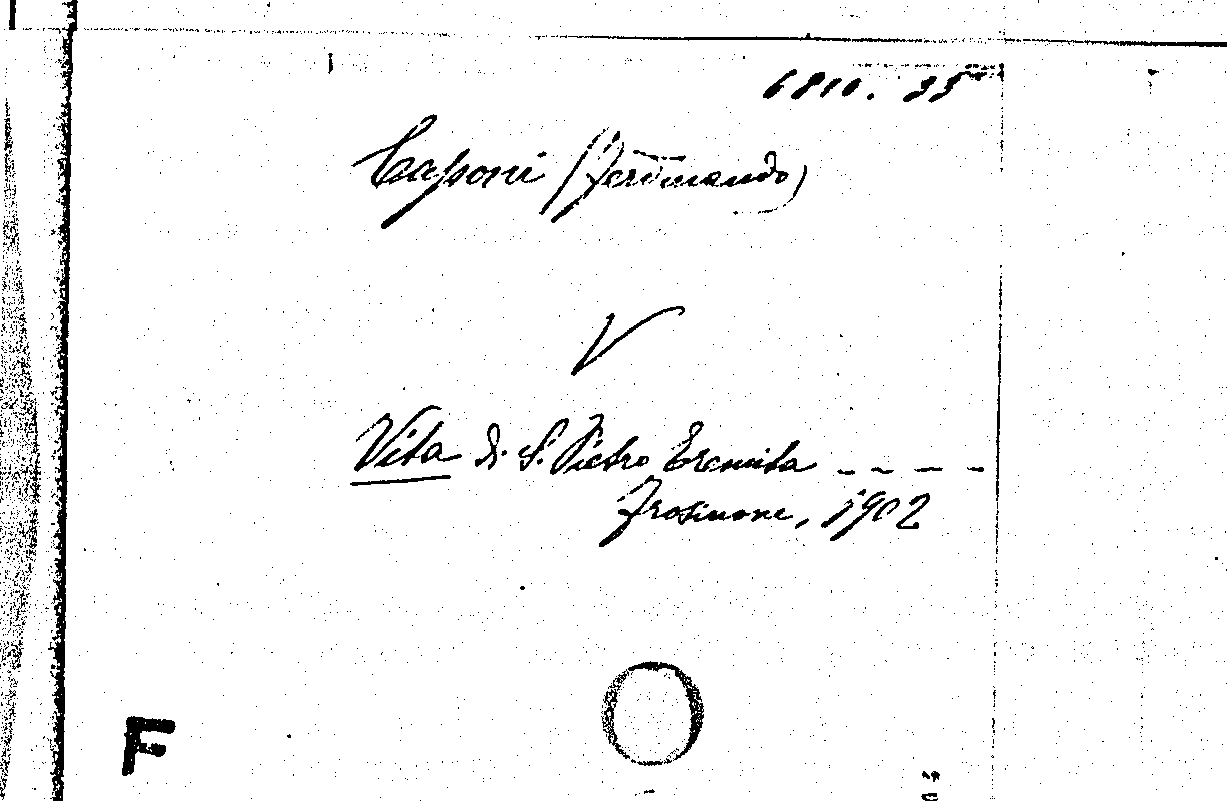 6810. 35
Caponi (Ferdinando)
V
Vita di S. Pietro Eremita - - - -
Frosinone, 1902
F